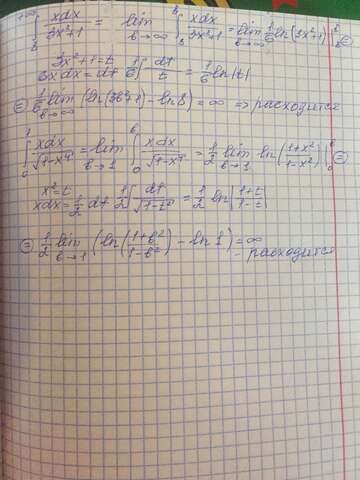 +∞∫b xdx/3x²+1 = lim b→∞ ∫b xdx/3x²+1 = lim b→∞ 1/6 ln(3x²+1)|b =
3x²+1=t
3xdx=dt 1/6∫dt/t = 1/6 ln|t|
= 1/6 lim b→∞ (ln(3b²+1)-ln1) = ∞ ⇒ расходится
1∫0 xdx/√1-x⁴ = lim b→1 b∫0 xdx/√1-x⁴ = 1/2 lim b→1 ln(1+x²/1-x²)|b0 =
x²=t
xdx=1/2dt 1/2∫dt/√1-t² = 1/2 ln|1+t/1-t|
= 1/2 lim b→1 (ln(1+b²/1-b²) - ln1) = ∞
- расходится